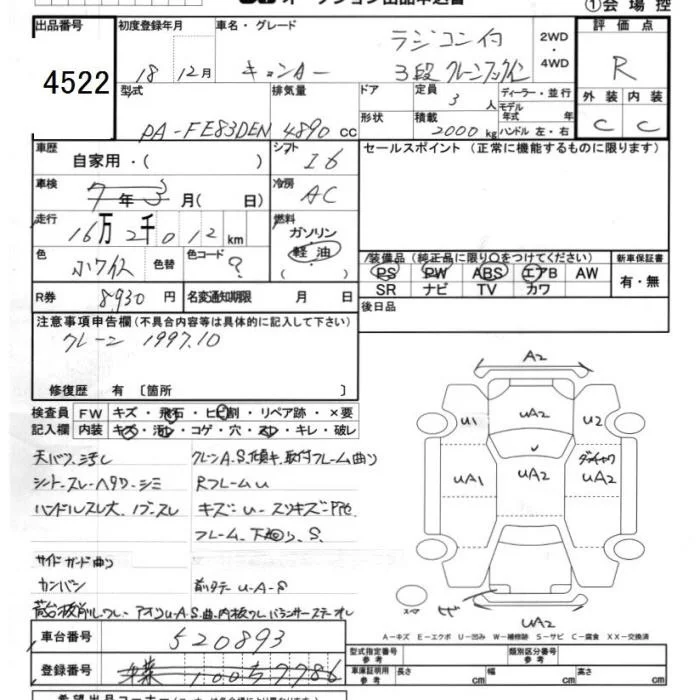 オークション出品申込書
①会場控
出品番号 初度登録年月 車名・グレード 評価点
4522
18年 12月
キャンター
ラジコン付
3段クレーンフックイン
2WD・4WD
R
外装 内装
C C
型式 PA-FE83DEN
排気量 4890 cc
ドア
形状
定員 3人
積載 2000kg
ディーラー・並行
モデル年式 年式
ハンドル 左・右
車歴 自家用・( )
シフト I6
セールスポイント(正常に機能するものに限ります)
車検 7年3月( 日)
冷房 AC
走行 16万2千012km
燃料 ガソリン 軽油
色 ホワイト 色替 色コード ?
装備品(純正品に限り○をつけてください) 新車保証書
PS PW ABS エアB AW
SR ナビ TV カワ
有・無
R券 8930円 名変通知期限 月 日
後日品
注意事項申告欄(不具合内容等は具体的に記入して下さい)
クレーン 1997.10
修復歴 有〔箇所 〕
検査員記入欄
FW キズ・飛石・ヒビ割・リペア跡・×要
内装 キズ・汚レ・コゲ・穴・スレ・キレ・破レ
天バリ汚レ
シートスレ・ヘタリ・シミ
ハンドルスレ大、ノブスレ
クレーンA.S.傾キ、取付フレーム曲り
RフレームU
キズ=U-スリキズ=
フレーム、下廻り、S.
サイドガード曲り
カンバン
前タテU-A-S
荷台板削レワレ アオリU.A.S.曲、内板ワレ
A2
U1 UA2 U2
UA1 UA2 UA2
UA2
スマ
A-キズ E-エクボ U-凹み W-補修跡 S-サビ C-腐食 XX-交換済
車台番号 520893
登録番号 千葉100ち7786
型式指定番号 参考
類別区分番号 参考
車庫証明用 参考 長さ cm 幅 cm 高さ cm
希望出品コーナー